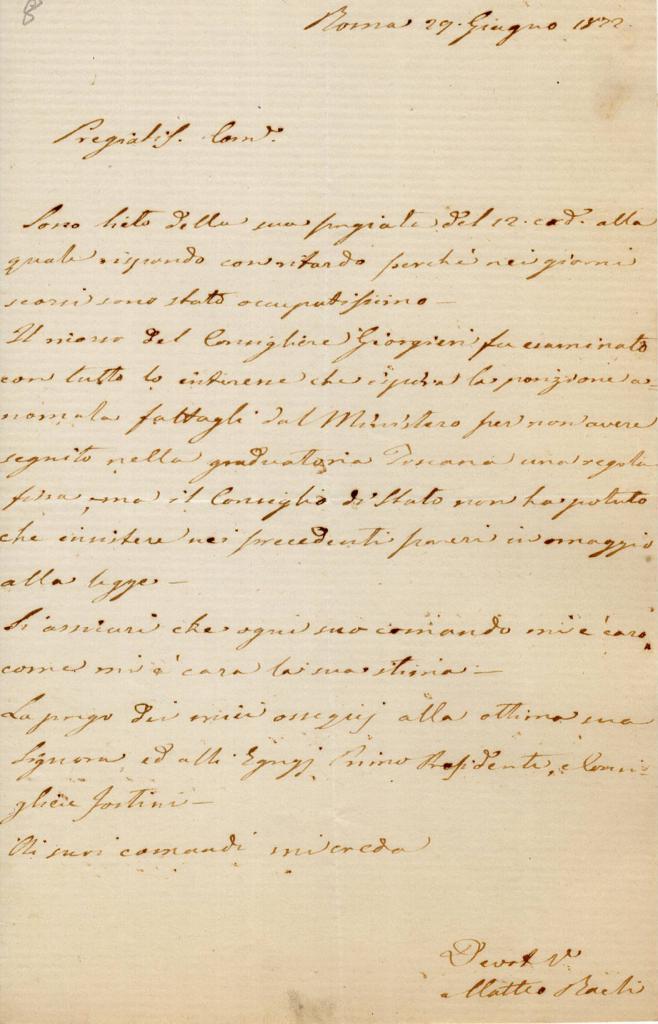 8
Roma 29. Giugno 1872
Pregiatis. Comd.
Sono lieto della sua pregiata del 12. cad. alla
quale rispondo con ritardo perchè nei giorni
scorsi sono stato occupatissimo —
Il ricorso del Consigliere Giorgieri fu esaminato
con tutto lo interesse che ispira la posizione a=
nomala fattagli dal Ministero per non avere
seguito nella graduatoria Toscana una regola
fissa, ma il Consiglio di Stato non ha potuto
che insistere nei precedenti pareri in omaggio
alla legge —
Si assicuri che ogni suo comando mi è caro,
come mi è cara la sua stima —
La prego dei miei ossequj alla ottima sua
Signora, ed alli Egregj Primo Presidente, e Consi=
gliere Fortini —
Ai suoi comandi mi creda
Devot
Matteo Raeli